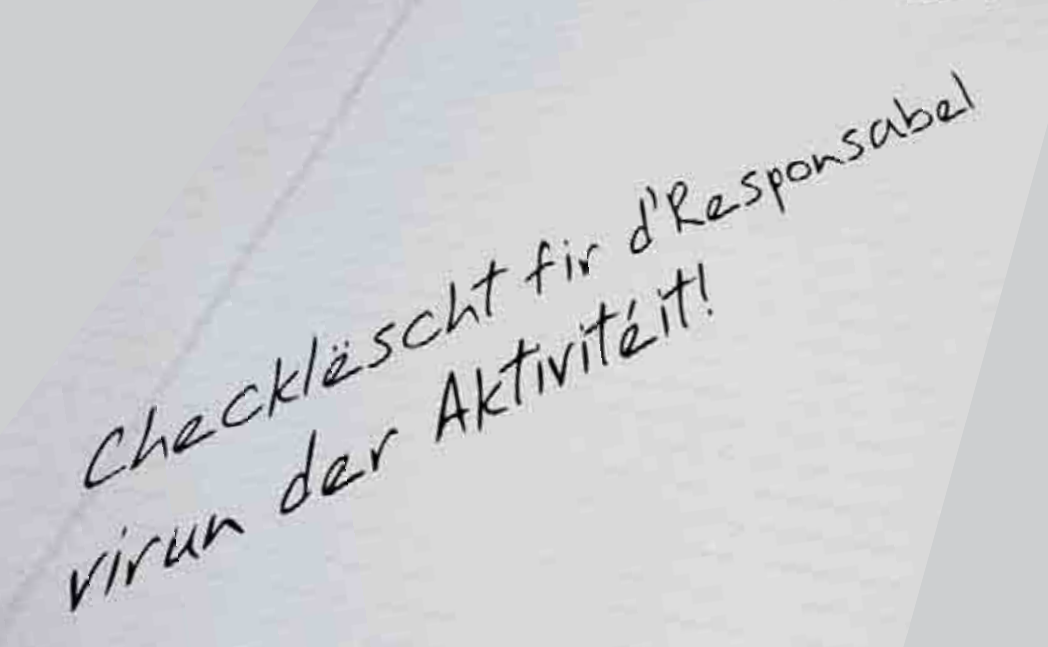 Checklëscht fir d'Responsabel
virun der Aktivitéit!